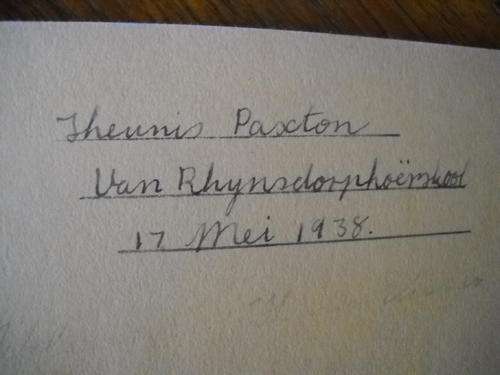 Theunis Paxton
Van Rhynsdorphoërskool
17 Mei 1938.